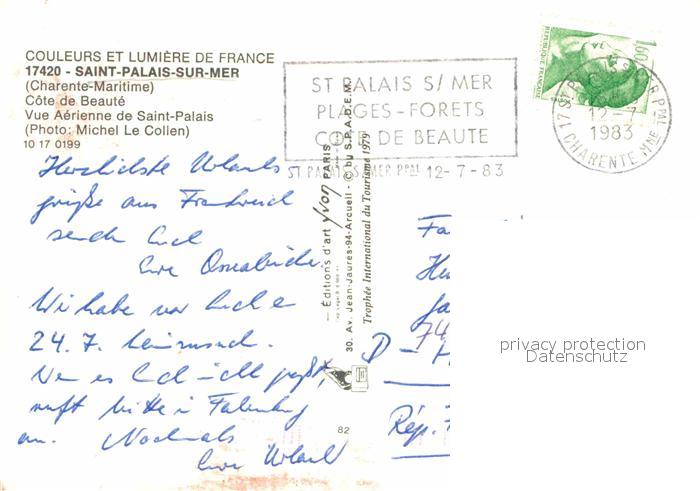 COULEURS ET LUMIÈRE DE FRANCE
17420 - SAINT-PALAIS-SUR-MER
(Charente-Maritime)
Côte de Beauté
Vue Aérienne de Saint-Palais
(Photo: Michel Le Collen)
10 17 0199
ST PALAIS S/ MER
PLAGES-FORETS
COTE DE BEAUTE
ST PALAIS S/MER PPAL 12-7-83
1,60
REPUBLIQUE FRANÇAISE
12-7
1983
17 CHARENTE MME
Herzlichste Urlaubs
grüße aus Frankreich
sendet Euch
Eure
Wir haben vor Euch
24. 7.
Wenn es Euch nicht paßt,
ruft bitte in
an. Nochmals
Eure
Editions d'art yvon PARIS
30. Av. Jean-Jaures-94-Arcueil - © by S.P.A.D.E.M.
Trophée International du Tourisme 1979
82
Fa
74
D - H
Rép. F
privacy protection
Datenschutz